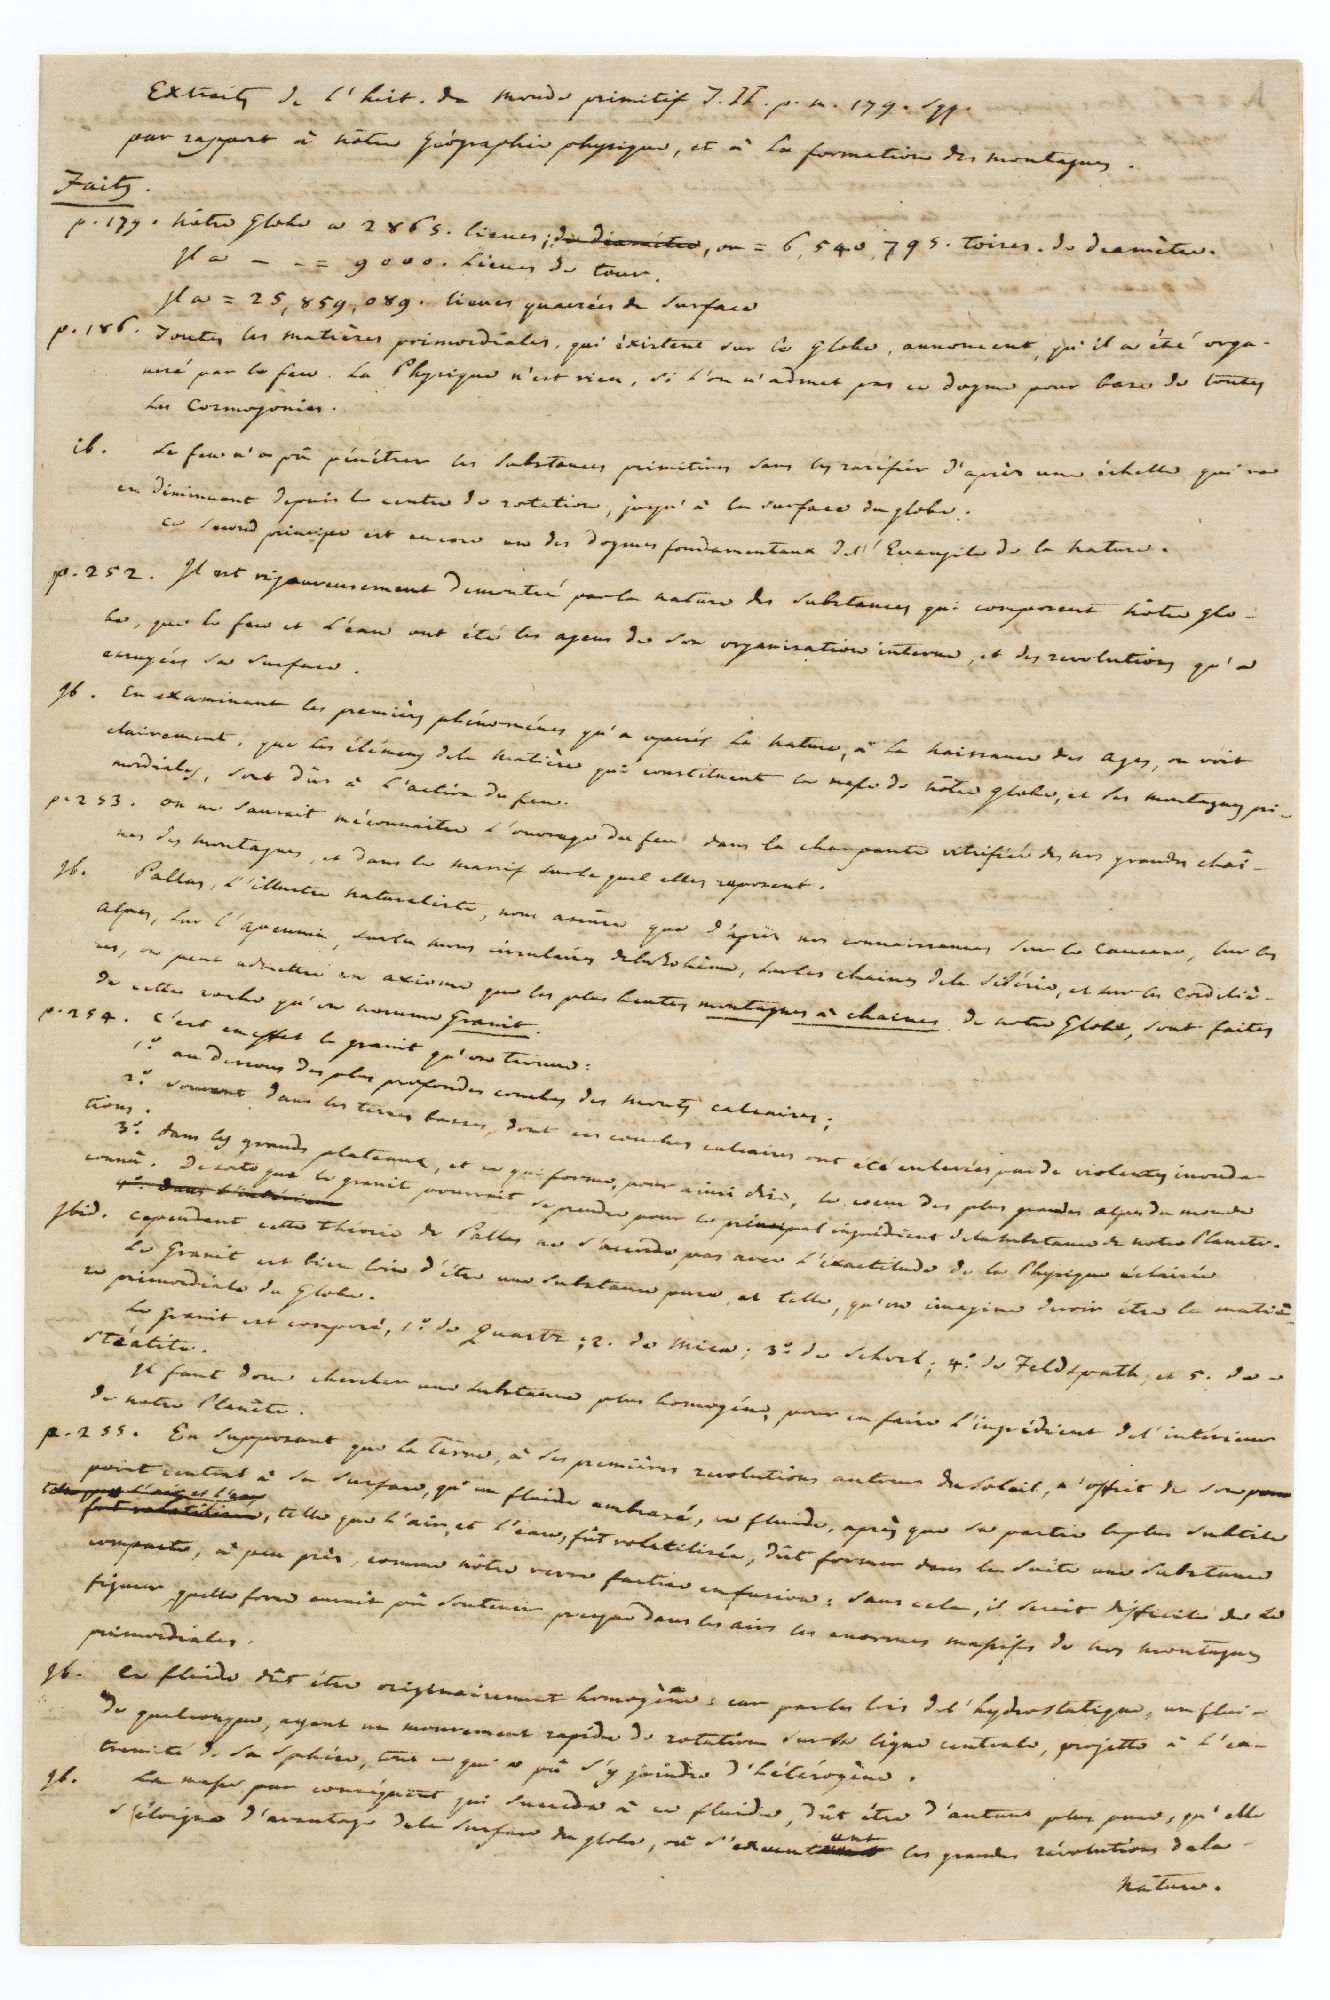 1
Extraits de l'hist. du monde primitif T. II. p. m. 179. sqq.
par rapport à nôtre Géographie physique, et à la formation des montagnes.
Faits.
p. 179. Nôtre Globe a 2865. lieues; de diamètre, ou = 6,540,795. toises. de diamètre.
Il a - - = 9000. Lieues de tour.
Il a = 25,859,089. lieues quarrées de surface
p. 186. Toutes les matières primordiales, qui éxistent sur le Globe, annoncent, qu'il a été orga-
nisé par le feu. La Physique n'est rien, si l'on n'admet pas ce dogme pour base de toutes
les Cosmogonies.
ib. Le feu n'a pû pénétrer les substances primitives sans les raréfier d'après une échelle qui va
en diminuant depuis le centre de rotation, jusqu'à la surface du globe.
Ce second principe est encore un des dogmes fondamentaux de l'Evangile de la Nature.
p. 252. Il est rigoureusement demontré par la nature des substances qui composent Nôtre glo-
be, que le feu et l'eau ont été les agens de son organisation interne, et des revolutions qu'a
essuyées sa surface.
Ib. En examinant les premiers phénomènes, qu'a opérés la Nature, à la naissance des ages, on voit
clairement, que les élémens de la matière qui constituent la masse de nôtre globe, et les montagnes pri-
mordiales, sont dûs à l'action du feu.
p. 253. On ne sauroit méconnaître l'ouvrage du feu dans la charpente vitrifiée des nos grandes chaî-
nes des montagnes, et dans le massif sur le quel elles reposent.
Ib. Pallas, l'illustre naturaliste, nous assûre que d'après nos connaissances sur le Caucase, sur les
alpes, sur l'Apennin, sur les monts circulaires de la Bohème, sur les chaines de la Sibérie, et sur les Cordiliè-
res, on peut admettre en axiome que les plus hautes montagnes à chaines de notre Globe, sont faites
de cette roche qu'on nomme Granit.
p. 254. C'est en effet le granit qu'on trouve:
1.° au dessous des plus profondes couches des monts calcaires;
2.° souvent dans les terres basses, dont ces couches calcaires ont été enlevées par de violentes inonda-
tions.
3.° dans les grands plateaux, et ce qui forme, pour ainsi dire, le coeur des plus grandes alpes du monde
connû. Desorte que le granit pourroit se prendre pour le principal ingrédient de la substance de notre Planete.
4.° dans l'intérieur
Ibid. Cependant cette théorie de Pallas ne s'accorde pas avec l'éxactitude de la Physique éclairée
Le Granit est bien loin d'être une substance pure, et telle, qu'on imagine devoir être la matiè-
re primordiale du Globe.
Le granit est composé, 1.° de Quartz; 2. de Mica; 3.° de Schorl; 4.° de Feldspath; et 5. de
Stéatite.
Il faut donc chercher une substance plus homogène, pour en faire l'ingrédient de l'intérieur
de notre Planête.
p. 255. En supposant que la Terre, à ses premières revolutions autour du Soleil, n'offrit de son
point central à sa surface, qu'un fluide embrasé, ce fluide, après que sa partie la plus subtile
telle que l'air et l'eau
fut volatilisée, telle que l'air, et l'eau, fût volatilisée, dût former dans la suite une substance
compacte, à peu près, comme nôtre verre factice en fusion: sans cela, il seroit difficile de se
figurer quelle force auroit pû soutenir presque dans les airs les enormes massifs de nos montagnes
primordiales.
Ib. Ce fluide dût être originairement homogène: car par les lois de l'hydrostatique, un flui-
de quelconque, ayant un mouvement rapide de rotation sur sa ligne centrale, projette à l'éx-
tremité de sa sphère, tout ce qui a pû s'y joindre d'hétérogène.
Ib. La masse par conséquent qui succéda à ce fluide, dût être d'autant plus pure, qu'elle
s'éloigne d'avantage de la surface du globe, où s'exécutent les grandes révolutions de la
Nature.